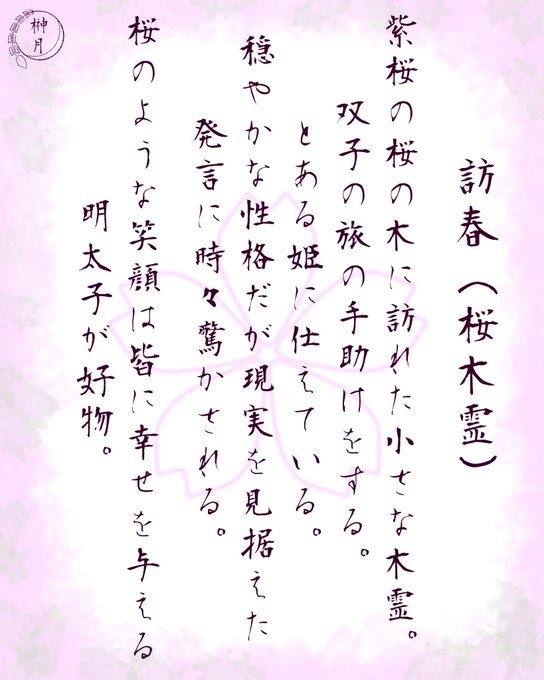 訪春（桜木霊）
紫桜の桜の木に訪れた小さな木霊。
双子の旅の手助けをする。
とある姫に仕えている。
穏やかな性格だが現実を見据えた
発言に時々驚かされる。
桜のような笑顔は皆に幸せを与える
明太子が好物。
榊月